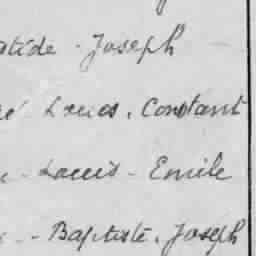 Joseph
Louis, Constant
- Louis - Emile
- Baptiste, Joseph